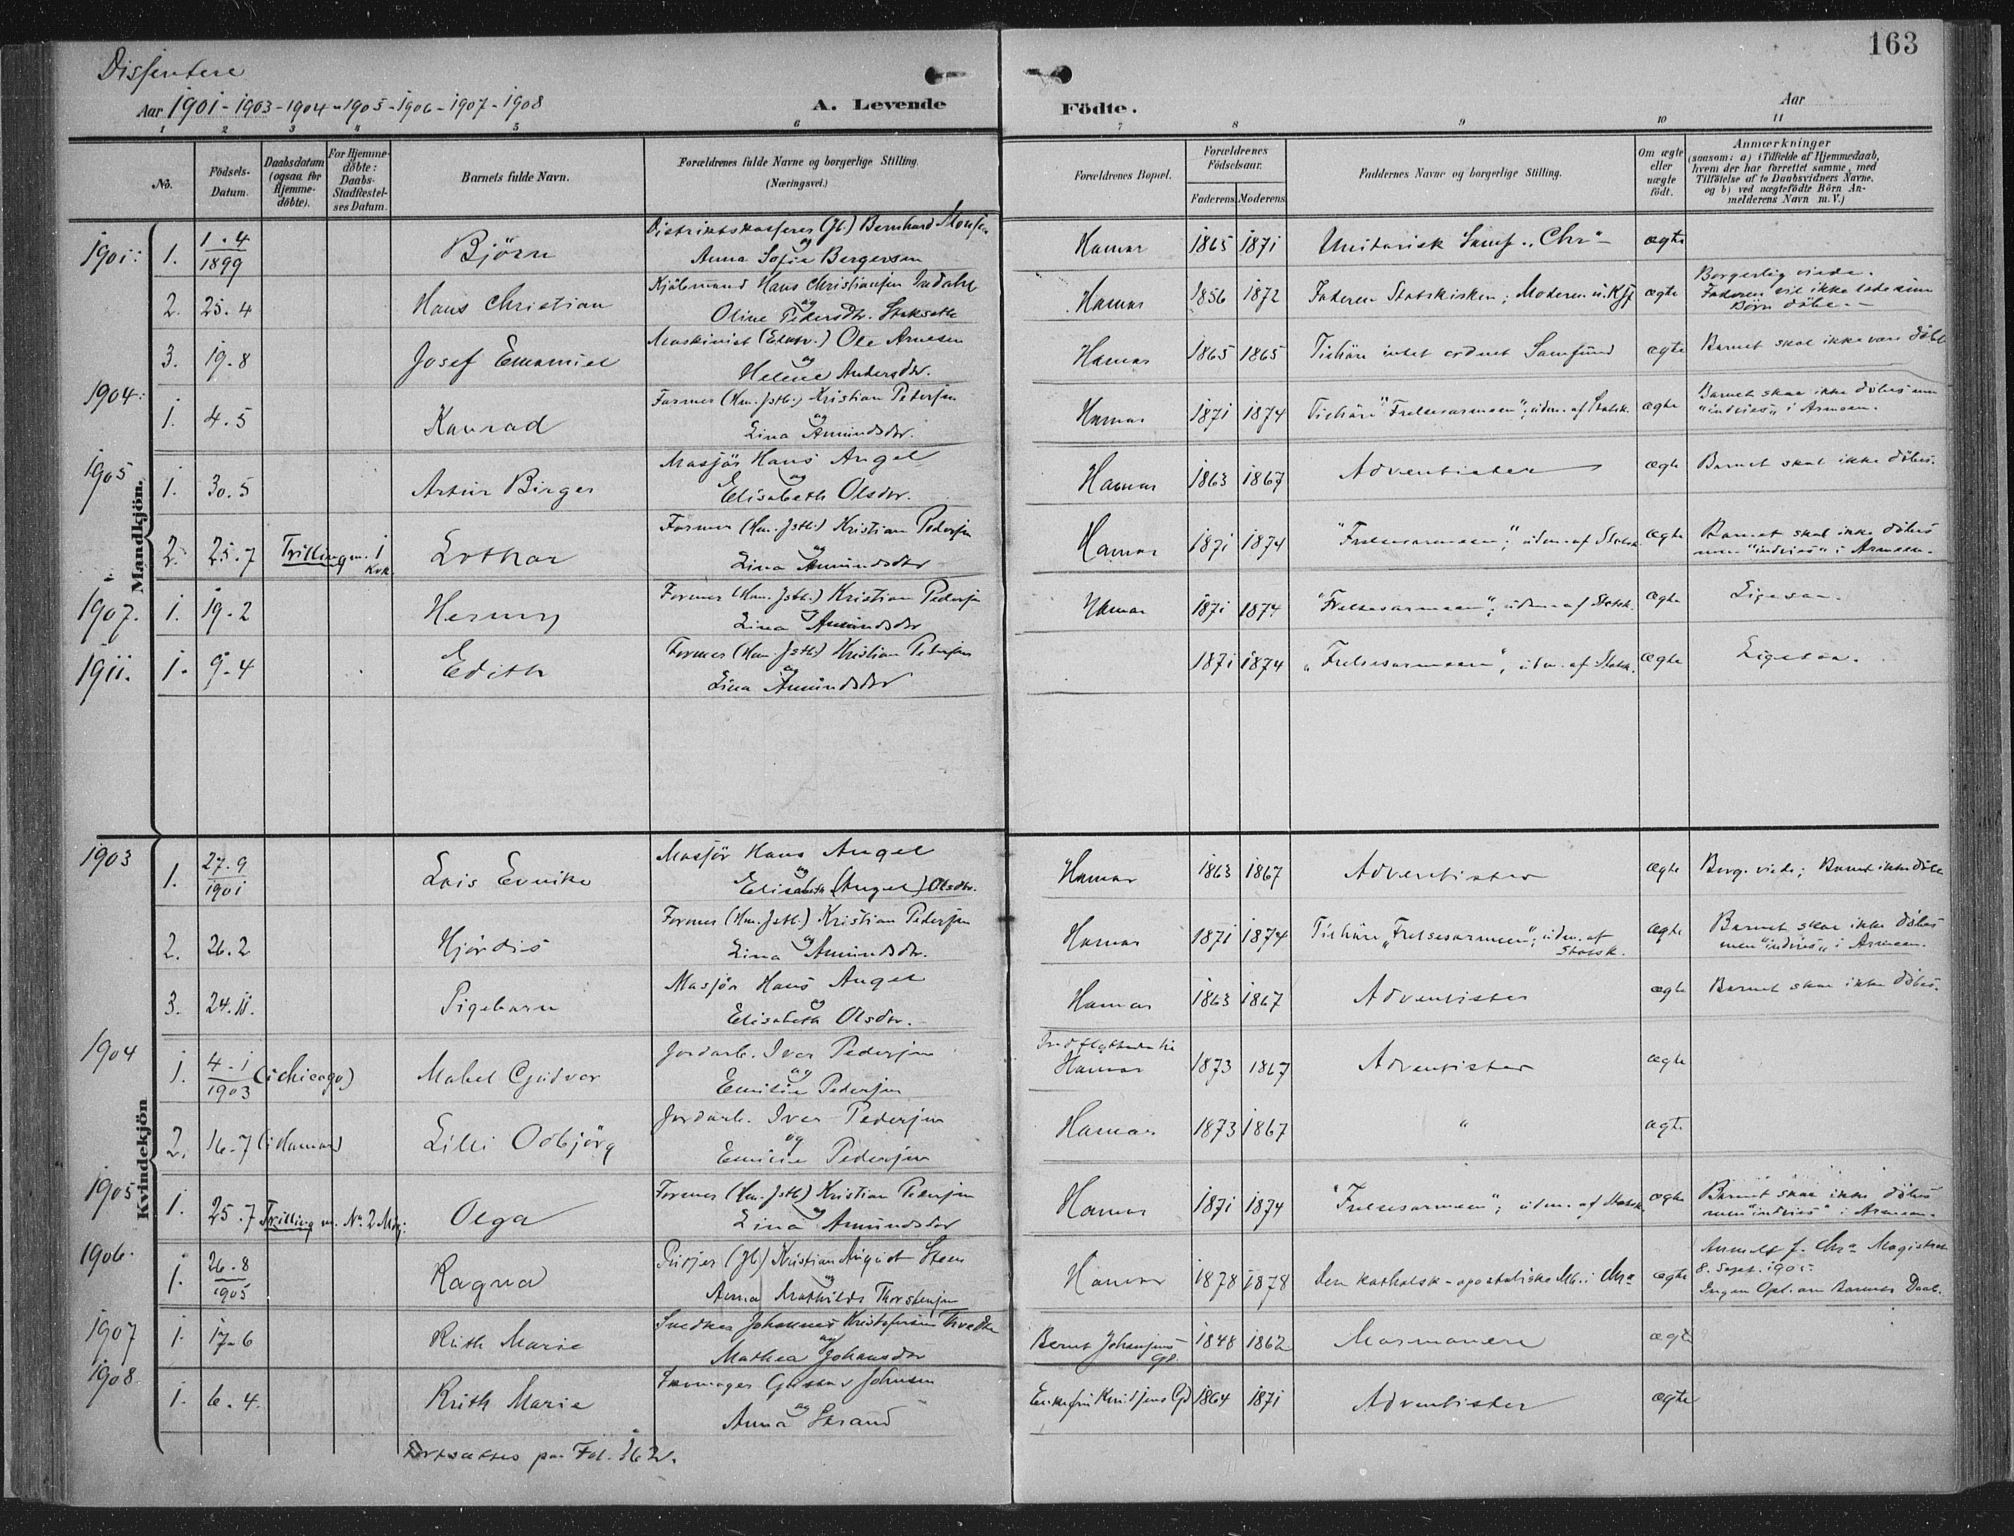 163
Dissentere
Aar 1901 - 1903 - 1904 - 1905 - 1906 - 1907 - 1908
A. Levende Födte.
Aar
1 2 3 4 5 6 7 8 9 10 11
No.
Födsels-Datum.
Daabsdatum (ogsaa for Hjemme-döbte).
For Hjemme-döbte: Daabs-Stadfæstel-ses Datum.
Barnets fulde Navn.
Forældrenes fulde Navne og borgerlige Stilling. (Næringsvei.)
Forældrenes Bopæl.
Forældrenes Födselsaar.
Faderens Moderens
Faddernes Navne og borgerlige Stilling.
Om ægte eller uægte födt.
Anmærkninger
(saasom: a) i Tilfælde af Hjemmedaab, hvem der har forrettet samme, med Tilföielse af to Daabsvidners Navne, og b) ved uægtefödte Börn An-melderens Navn m. V.)
Mandkjön.
1901: 1. 1.4 1899 Björn Bernhard og Anna Sofie Bergersen Hamar 1865 1871 Unitarisk Samf. „Chr" ægte
2. 25.4 Hans Christian Kjöbmand Hans Christiansen og Oline Pedersdtr. Hamar 1856 1872 Faderen Statskirken; Moderen ægte Borgerlig viede. Faderen vil ikke lade sine Börn döbe.
3. 19.8 Josef Emanuel Maskinist Ole Arnesen og Helene Andersdtr. Hamar 1865 1865 Tilhörer intet ordnet Samfund ægte Barnet skal ikke være döbt
1904: 1. 4.5 Konrad Former (Hm. Jstb.) Kristian Pedersen og Lina Amundsdtr. Hamar 1871 1874 "Frelsesarmeen"; udm. af Statsk. ægte Barnet skal ikke döbes men "indvies" i Armeen.
1905 1. 30.5 Artur Birger Hans Angel og Elisabeth Olsdtr. Hamar 1863 1867 Adventister ægte Barnet skal ikke döbes.
2. 25.7 Trilling m. 1 Kvk Lothar Former (Hm. Jstb.) Kristian Pedersen og Lina Amundsdtr Hamar 1871 1874 "Frelsesarmeen"; udm. af Statsk ægte Barnet skal ikke döbes men "indvies" i Armeen.
1907. 1. 19.2 Former (Hm. Jstb.) Kristian Pedersen og Lina Amundsdtr Hamar 1871 1874 "Frelsesarmeen"; udm. af Statsk. ægte Ligesaa.
1911. 1. 9.4 Edith Former (Hm. Jstb.) Kristian Pedersen og Lina Amundsdtr 1871 1874 "Frelsesarmeen", udm. af Statsk. ægte Ligesaa.
Kvindekjön
1903 1. 27.9 1901 Lois Evnike Hans Angel og Elisabeth (Angel) Olsdtr. Hamar 1863 1867 Adventister ægte Borg. viede; Barnet ikke döbt
2. 26.2 Hjördis Former (Hm. Jstb.) Kristian Pedersen og Lina Amundsdtr. Hamar 1871 1874 "Frelsesarmeen"; udm. af Statsk. ægte Barnet skal ikke döbes men "indvies" i Armeen.
3. 24.11. Pigebarn Hans Angel og Elisabeth Olsdtr. Hamar 1863 1867 Adventister ægte Barnet skal ikke döbes.
1904 1. 4.1 1903 (i Chicago) Mabel Gudvor Jordarb. Iver Pedersen og Emilie Pedersen Indflyttede til Hamar 1873 1867 Adventister ægte
2. 16.7 (i Hamar) Lilli Odbjörg Jordarb. Iver Pedersen og Emilie Pedersen Hamar 1873 1867 " ægte
1905 1. 25.7 Trilling m. No. 2 Mkj. Olga Former (Hm. Jstb.) Kristian Pedersen og Lina Amundsdtr Hamar 1871 1874 "Frelsesarmeen"; udm. af Statsk ægte Barnet skal ikke döbes men "indvies" i Armeen.
1906. 1. 26.8 1905 Ragna Kristian August Steen og Anna Mathilde Thorstensen Hamar 1878 1878 Den katholsk-apostoliske Mh. i Chra ægte Anmeldt f. Chra Magistrat 8. Sept. 1905 Ingen Opl. om Barnets Daab.
1907 1. 17.6 Ruth Marie Snedker Johannes Kristofersen og Mathea Johansdtr Bernt Johansens Gd. 1848 1862 Mormonere ægte
1908 1. 6.4. Ruth Marie Gustav Johnsen og Anna Strand 1864 1871 Adventister ægte
Fortsættes paa Fol. 162.